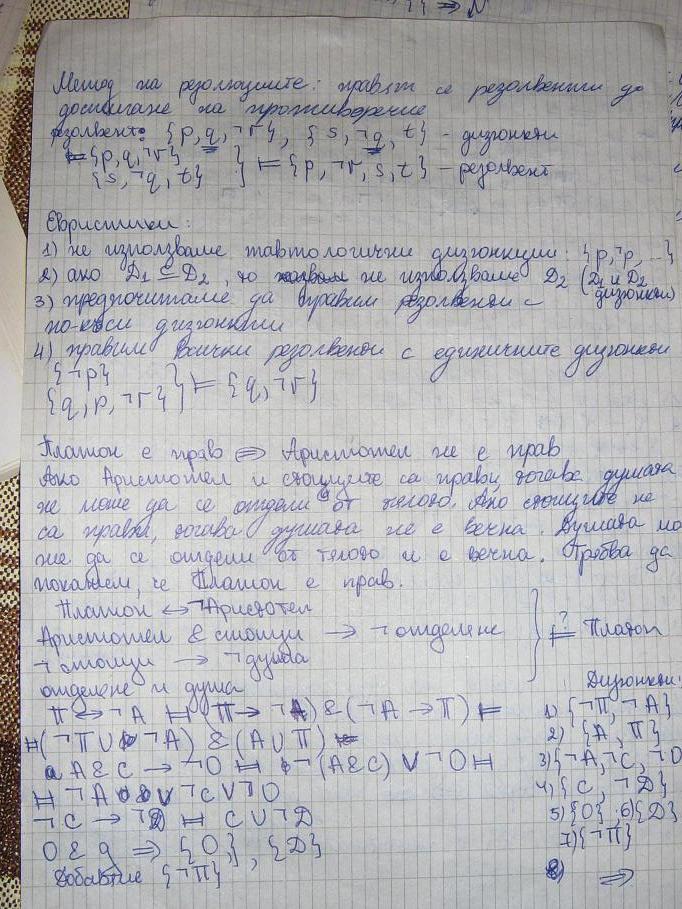 Метод на резолюциите: правят се резолвенти до
достигане на противоречие
резолвент: {p, q, ¬r}, {s, ¬q, t} - дизюнкти
{p, q, ¬r}
{s, ¬q, t} } ⊨ {p, ¬r, s, t} - резолвент
Евристики:
1) не използваме тавтологични дизюнкции: {p, ¬p, ...}
2) ако D₁ ⊆ D₂, то не използваме D₂ (D₁ и D₂ дизюнкти)
3) предпочитаме да правим резолвенти с
по-къси дизюнкти
4) правим всички резолвенти с единичните дизюнкти
{¬p}
{q, p, ¬r} } ⊨ {q, ¬r}
Платон е прав ⇔ Аристотел не е прав
Ако Аристотел и стоиците са прави, тогава душата
не може да се отдели от тялото. Ако стоиците не
са прави, тогава душата не е вечна. Душата мо
же да се отдели от тялото и е вечна. Трябва да
покажем, че Платон е прав.
Платон ↔ ¬Аристотел
Аристотел & стоици → ¬отделяне } ⊨? Платон
¬стоици → ¬душа
отделяне и душа
Дизюнкти:
П ↔ ¬A ⊨ (П → ¬A) & (¬A → П)
1) {¬П, ¬A}
(¬П ∪ ¬A) & (A ∪ П)
2) {A, П}
A & C → ¬O ¬(A & C) ∨ ¬O
3) {¬A, ¬C, ¬O
¬A ∨ ¬C ∨ ¬O
4) {C, ¬D}
¬C → ¬D C ∪ ¬D
5) {O}, 6) {D}
O & д ⇒ {O}, {D}
7) {¬П}
Добавяме {¬П}
8) ⇒